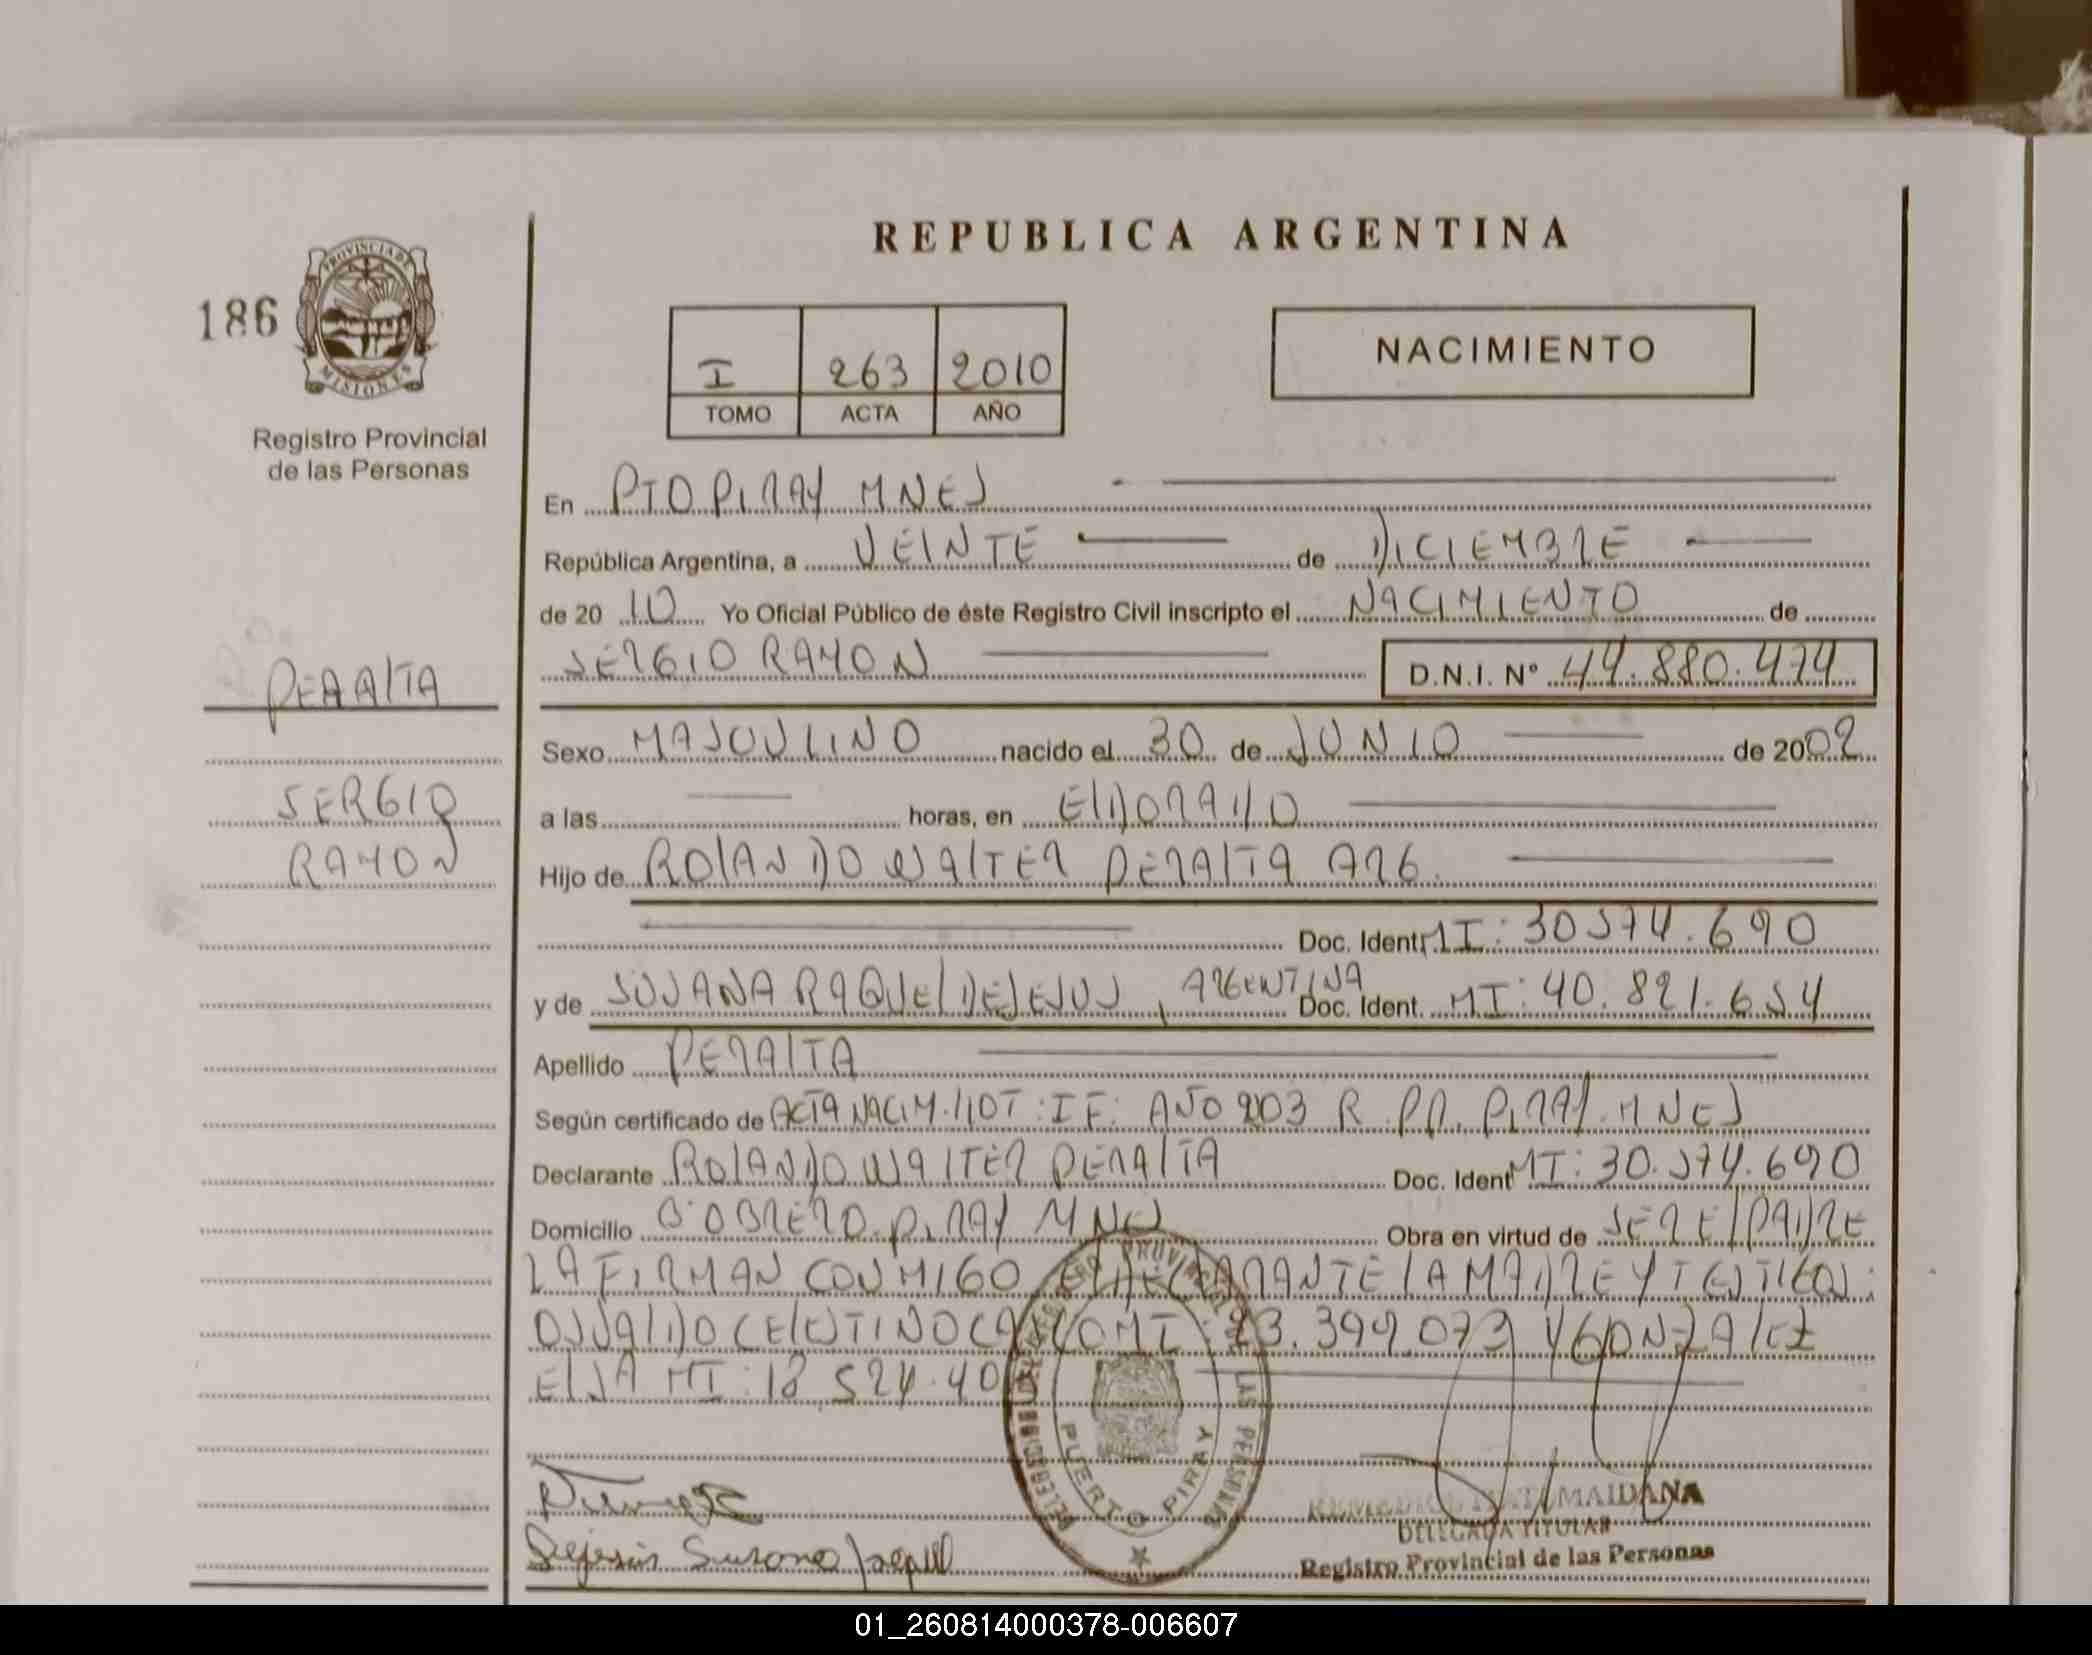 REPUBLICA ARGENTINA
186
PROVINCIA DE
MISIONES
Registro Provincial
de las Personas
I 263 2010
TOMO ACTA AÑO
NACIMIENTO
En PTO PIRAY MNES
República Argentina, a VEINTE de DICIEMBRE
de 2010 Yo Oficial Público de éste Registro Civil inscripto el NACIMIENTO de
SERGIO RAMON D.N.I. Nº 44.880.474
PERALTA
SERGIO
RAMON
Sexo MASCULINO nacido el 30 de JUNIO de 2002
a las horas, en ELDORADO
Hijo de ROLANDO WALTER PERALTA ARG.
Doc. Ident. MI: 30574.690
y de SUSANA RAQUEL DEJESUS, ARGENTINA Doc. Ident. MI: 40.821.654
Apellido PERALTA
Según certificado de ACTA NACIM. 110 T: I F: AÑO 2003 R. PP. PIRAY. MNES
Declarante ROLANDO WALTER PERALTA Doc. Ident MI: 30.574.690
Domicilio Bº OBRERO. PIRAY MNES Obra en virtud de SER EL PADRE
LA FIRMAN CONMIGO EL DECLARANTE LA MADRE Y TESTIGOS:
OSVALDO CELESTINO MI: 23.399.073 Y GONZALEZ
ELSA MI: 18.524.40
PUERTO PIRAY
LAS PERSONAS
Dejesus Susana Raquel
MAIDANA
DELEGADA TITULAR
Registro Provincial de las Personas
01_260814000378-006607